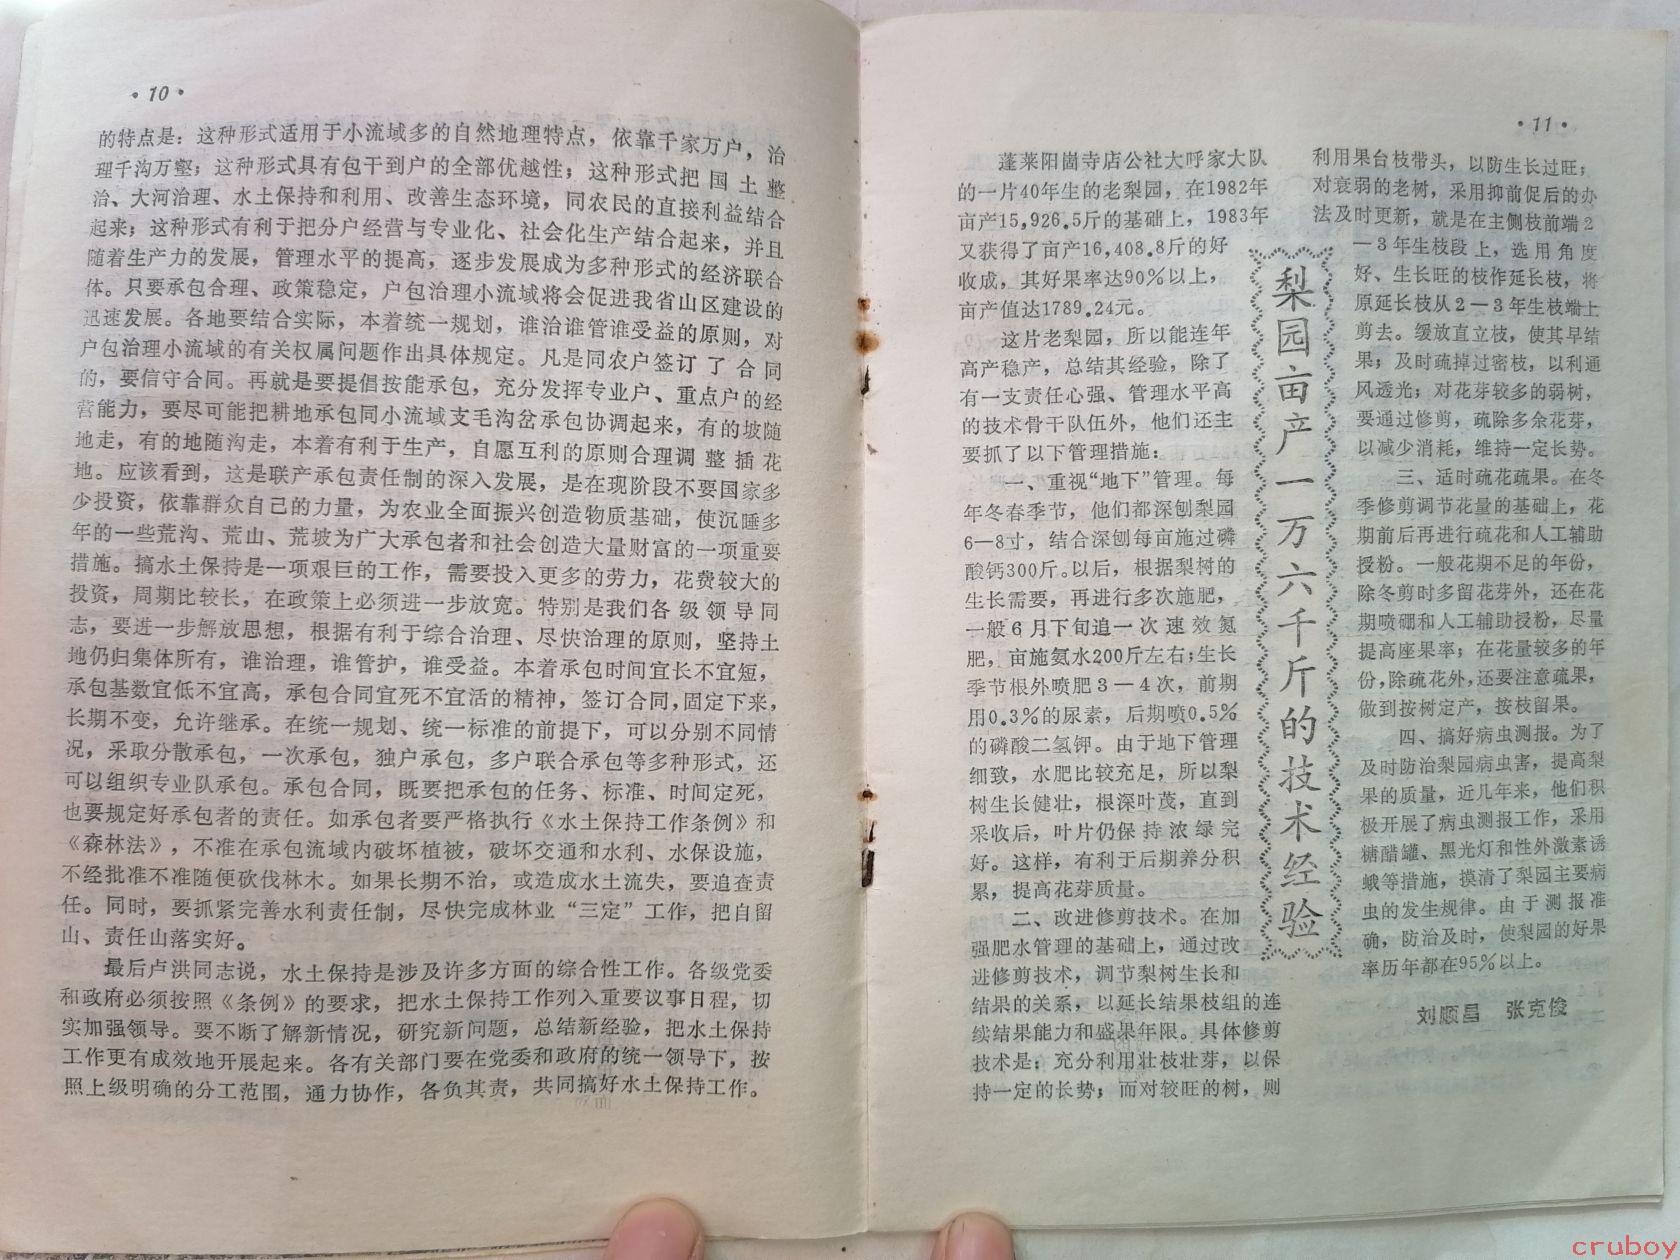 • 10 •
的特点是：这种形式适用于小流域多的自然地理特点，依靠千家万户，治
理千沟万壑；这种形式具有包干到户的全部优越性；这种形式把国土整
治、大河治理、水土保持和利用、改善生态环境，同农民的直接利益结合
起来；这种形式有利于把分户经营与专业化、社会化生产结合起来，并且
随着生产力的发展，管理水平的提高，逐步发展成为多种形式的经济联合
体。只要承包合理、政策稳定，户包治理小流域将会促进我省山区建设的
迅速发展。各地要结合实际，本着统一规划，谁治谁管谁受益的原则，对
户包治理小流域的有关权属问题作出具体规定。凡是同农户签订了合同
的，要信守合同。再就是要提倡按能承包，充分发挥专业户、重点户的经
营能力，要尽可能把耕地承包同小流域支毛沟岔承包协调起来，有的坡随
地走，有的地随沟走，本着有利于生产，自愿互利的原则合理调整插花
地。应该看到，这是联产承包责任制的深入发展，是在现阶段不要国家多
少投资，依靠群众自己的力量，为农业全面振兴创造物质基础，使沉睡多
年的一些荒沟、荒山、荒坡为广大承包者和社会创造大量财富的一项重要
措施。搞水土保持是一项艰巨的工作，需要投入更多的劳力，花费较大的
投资，周期比较长，在政策上必须进一步放宽。特别是我们各级领导同
志，要进一步解放思想，根据有利于综合治理、尽快治理的原则，坚持土
地仍归集体所有，谁治理，谁管护，谁受益。本着承包时间宜长不宜短，
承包基数宜低不宜高，承包合同宜死不宜活的精神，签订合同，固定下来，
长期不变，允许继承。在统一规划、统一标准的前提下，可以分别不同情
况，采取分散承包，一次承包，独户承包，多户联合承包等多种形式，还
可以组织专业队承包。承包合同，既要把承包的任务、标准、时间定死，
也要规定好承包者的责任。如承包者要严格执行《水土保持工作条例》和
《森林法》，不准在承包流域内破坏植被，破坏交通和水利、水保设施，
不经批准不准随便砍伐林木。如果长期不治，或造成水土流失，要追查责
任。同时，要抓紧完善水利责任制，尽快完成林业“三定”工作，把自留
山、责任山落实好。
最后卢洪同志说，水土保持是涉及许多方面的综合性工作。各级党委
和政府必须按照《条例》的要求，把水土保持工作列入重要议事日程，切
实加强领导。要不断了解新情况，研究新问题，总结新经验，把水土保持
工作更有成效地开展起来。各有关部门要在党委和政府的统一领导下，按
照上级明确的分工范围，通力协作，各负其责，共同搞好水土保持工作。
• 11 •
梨园亩产一万六千斤的技术经验
蓬莱阳崮寺店公社大呼家大队
的一片40年生的老梨园，在1982年
亩产15,926.5斤的基础上，1983年
又获得了亩产16,408.8斤的好
收成，其好果率达90%以上，
亩产值达1789.24元。
这片老梨园，所以能连年
高产稳产，总结其经验，除了
有一支责任心强、管理水平高
的技术骨干队伍外，他们还主
要抓了以下管理措施：
一、重视“地下”管理。每
年冬春季节，他们都深刨梨园
6—8寸，结合深刨每亩施过磷
酸钙300斤。以后，根据梨树的
生长需要，再进行多次施肥，
一般6月下旬追一次速效氮
肥，亩施氨水200斤左右；生长
季节根外喷肥3－4次，前期
用0.3%的尿素，后期喷0.5%
的磷酸二氢钾。由于地下管理
细致，水肥比较充足，所以梨
树生长健壮，根深叶茂，直到
采收后，叶片仍保持浓绿完
好。这样，有利于后期养分积
累，提高花芽质量。
二、改进修剪技术。在加
强肥水管理的基础上，通过改
进修剪技术，调节梨树生长和
结果的关系，以延长结果枝组的连
续结果能力和盛果年限。具体修剪
技术是：充分利用壮枝壮芽，以保
持一定的长势；而对较旺的树，则
利用果台枝带头，以防生长过旺；
对衰弱的老树，采用抑前促后的办
法及时更新，就是在主侧枝前端2
—3年生枝段上，选用角度
好、生长旺的枝作延长枝，将
原延长枝从2－3年生枝端上
剪去。缓放直立枝，使其早结
果；及时疏掉过密枝，以利通
风透光；对花芽较多的弱树，
要通过修剪，疏除多余花芽，
以减少消耗，维持一定长势。
三、适时疏花疏果。在冬
季修剪调节花量的基础上，花
期前后再进行疏花和人工辅助
授粉。一般花期不足的年份，
除冬剪时多留花芽外，还在花
期喷硼和人工辅助授粉，尽量
提高座果率；在花量较多的年
份，除疏花外，还要注意疏果，
做到按树定产，按枝留果。
四、搞好病虫测报。为了
及时防治梨园病虫害，提高梨
果的质量，近几年来，他们积
极开展了病虫测报工作，采用
糖醋罐、黑光灯和性外激素诱
蛾等措施，摸清了梨园主要病
虫的发生规律。由于测报准
确，防治及时，使梨园的好果
率历年都在95%以上。
刘顺昌　张克俊
cruboy